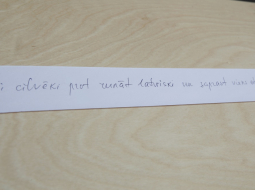 cilvēki prot runāt latviski un saprast